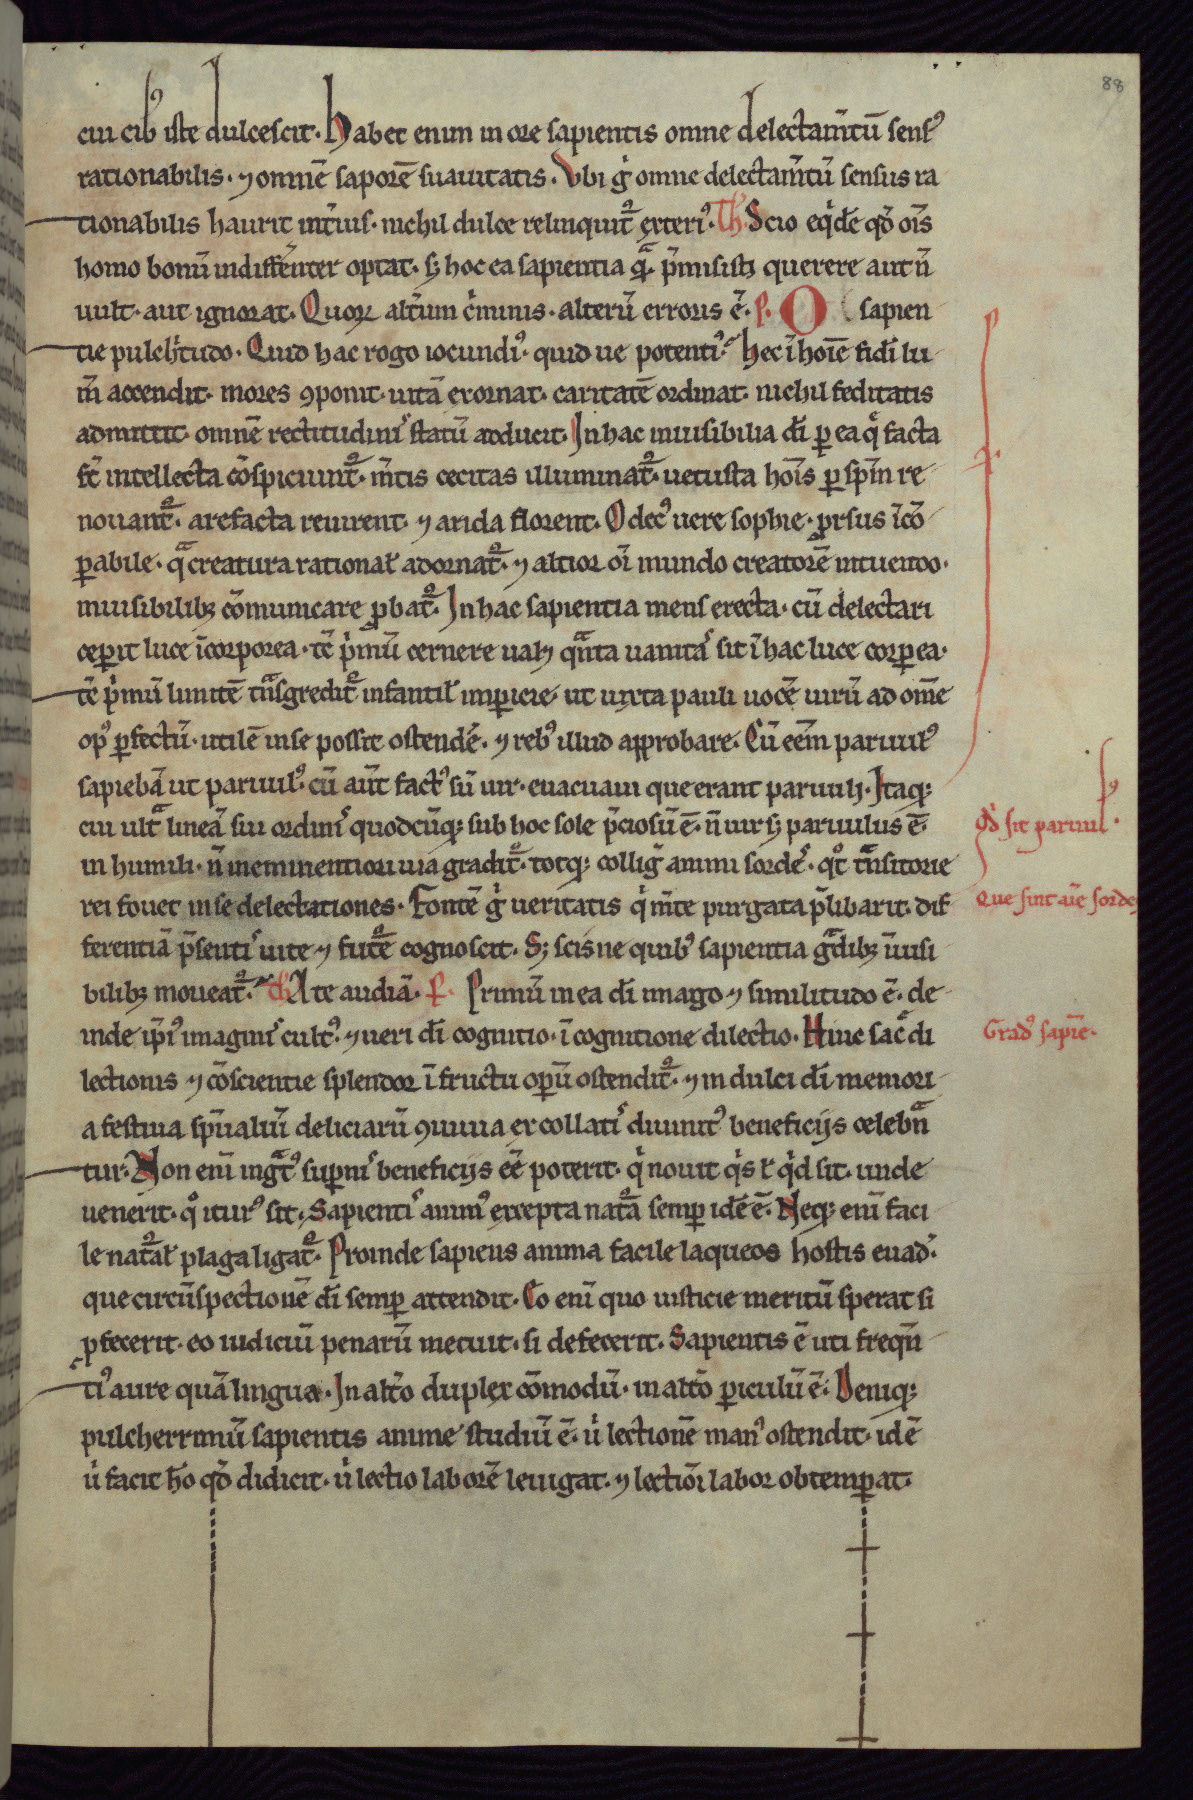 88
cui cib᷒ iste dulcescit. Habet enim in ore sapientis omne delectam̄tū sens᷒
rationabilis. ⁊ omnē saporē suauitatis. Vbi g̊ omne delectam̄tū sensus ra
tionabilis haurit int̄ius. nichil dulce relinquit᷒ exteri᷒. Th̄. Scio eq̇dē qd̄ oīs
homo bonū indiffēnter optat. sꝫ hoc ea sapientia qͣ. p̄misistꝫ querere aut n̄
uult. aut ignorat. Quoꝝ alt̄um c̄minis. alterū erroris ē. P. O sapien
tie pulch̄tudo. Quid hac rogo iocundi᷒. quid ue potenti᷒. Hec ī hoīe fidī lu
m̄ accendit. mores ꝯponit. uitā exornat. caritatē ordinat. nichil feditatis
admittit. omnē rectitudinis statū adducit. In hac inuisibilia dī ꝑ ea q̄ facta
st̄ intellecta cōspiciunt᷒. m̄tis cecitas illuminat᷒. uetusta hoīs ꝑ spīm re
nouant᷒. arefacta reuirent. ⁊ arida florent. O dec᷒ uere sophie. ꝓrsus īcō
ꝑabile. qͣ creatura rational̄ adornat᷒. ⁊ altior oī mundo creatorē intuendo.
inuisibilibꝫ cōmunicare ꝓbat᷒. In hac sapientia mens erecta. cū delectari
ceperit luce īcorporea. tc̄ ṗmū cernere ualꝫ qͣnta uanitas sit ī hac luce corꝑea.
tc̄ ṗmū limitē tͣnsgredit᷒ infantil̄ imꝑicie. ut iuxta pauli uocē uirū ad om̄e
op᷒ ꝑfectū. utilē in se possit ostendē. ⁊ reb᷒ illud approbare. Cū eēm paruul᷒
sapiebā ut paruul᷒. cū aūt fact᷒ sū uir. euacuaui que erant paruulꝫ. Itaqꝫ
cui ultͣ lineā sui ordinis quodcūqꝫ sub hoc sole p̄ciosū ē. n̄ uir sꝫ paruulus ē.
in humili. n̄ in eminentiori uia gradit᷒. totqꝫ collig̅ animi sordes. qt̊ tͣnsitorie
rei fouet in se delectationes. Fontē g̊ ueritatis q̇ m̄te purgata p̄libarit. dif
ferentiā p̄sentis uite ⁊ fut᷒e cognoscit. Sꝫ scisne quib᷒ sapientia gͣdibꝫ inuisi
bilibꝫ moueat᷒. Th̄ A te audiā. P. Primū in ea dī imago ⁊ similitudo ē. de
inde ip̄i᷒ imaginis cult᷒. ⁊ ueri dī cognitio. ī cognitione dilectio. Hinc sac̄ di
lectionis ⁊ cōscientie splendor ī fructu opūm ostendit᷒. ⁊ in dulci dī memori
a festiua spūalium deliciarū ꝯuiuia ex collatis diuinit᷒ beneficiis celebrͣn
tur. Non enī ingͣt᷒ suꝑnis beneficiis eē poterit. q̇ nouit q̇s ł q̇d sit. unde
uenerit. q̊ itur᷒ sit. Sapientis anim᷒ excepta nat᷒a semꝑ idē ē. Neqꝫ enī faci
le nat᷒al̄ plaga ligat᷒. Proinde sapiens anima facile laqueos hostis euad᷒.
que circūspectionē dī semꝑ attendit. Eo enī quo iusticie meritū sperat si
ꝓfecerit. eo iudiciū penarū metuit. si defecerit. Sapientis ē uti freqn̄
ti᷒ aure quā lingua. In alt̄o duplex cōmodū. in alt̄o ꝑiculū ē. Deniqꝫ
pulcherrimū sapientis anime studiū ē. u̇ lectionē man᷒ ostendit. idē
u̇ facit hō qd̄ didicit. u̇ lectio laborē leuigat. ⁊ lectiōī labor obtemꝑat.
Qd̄ sit paruul᷒.
Que sint aīe sordes
Grad᷒ sapīe.